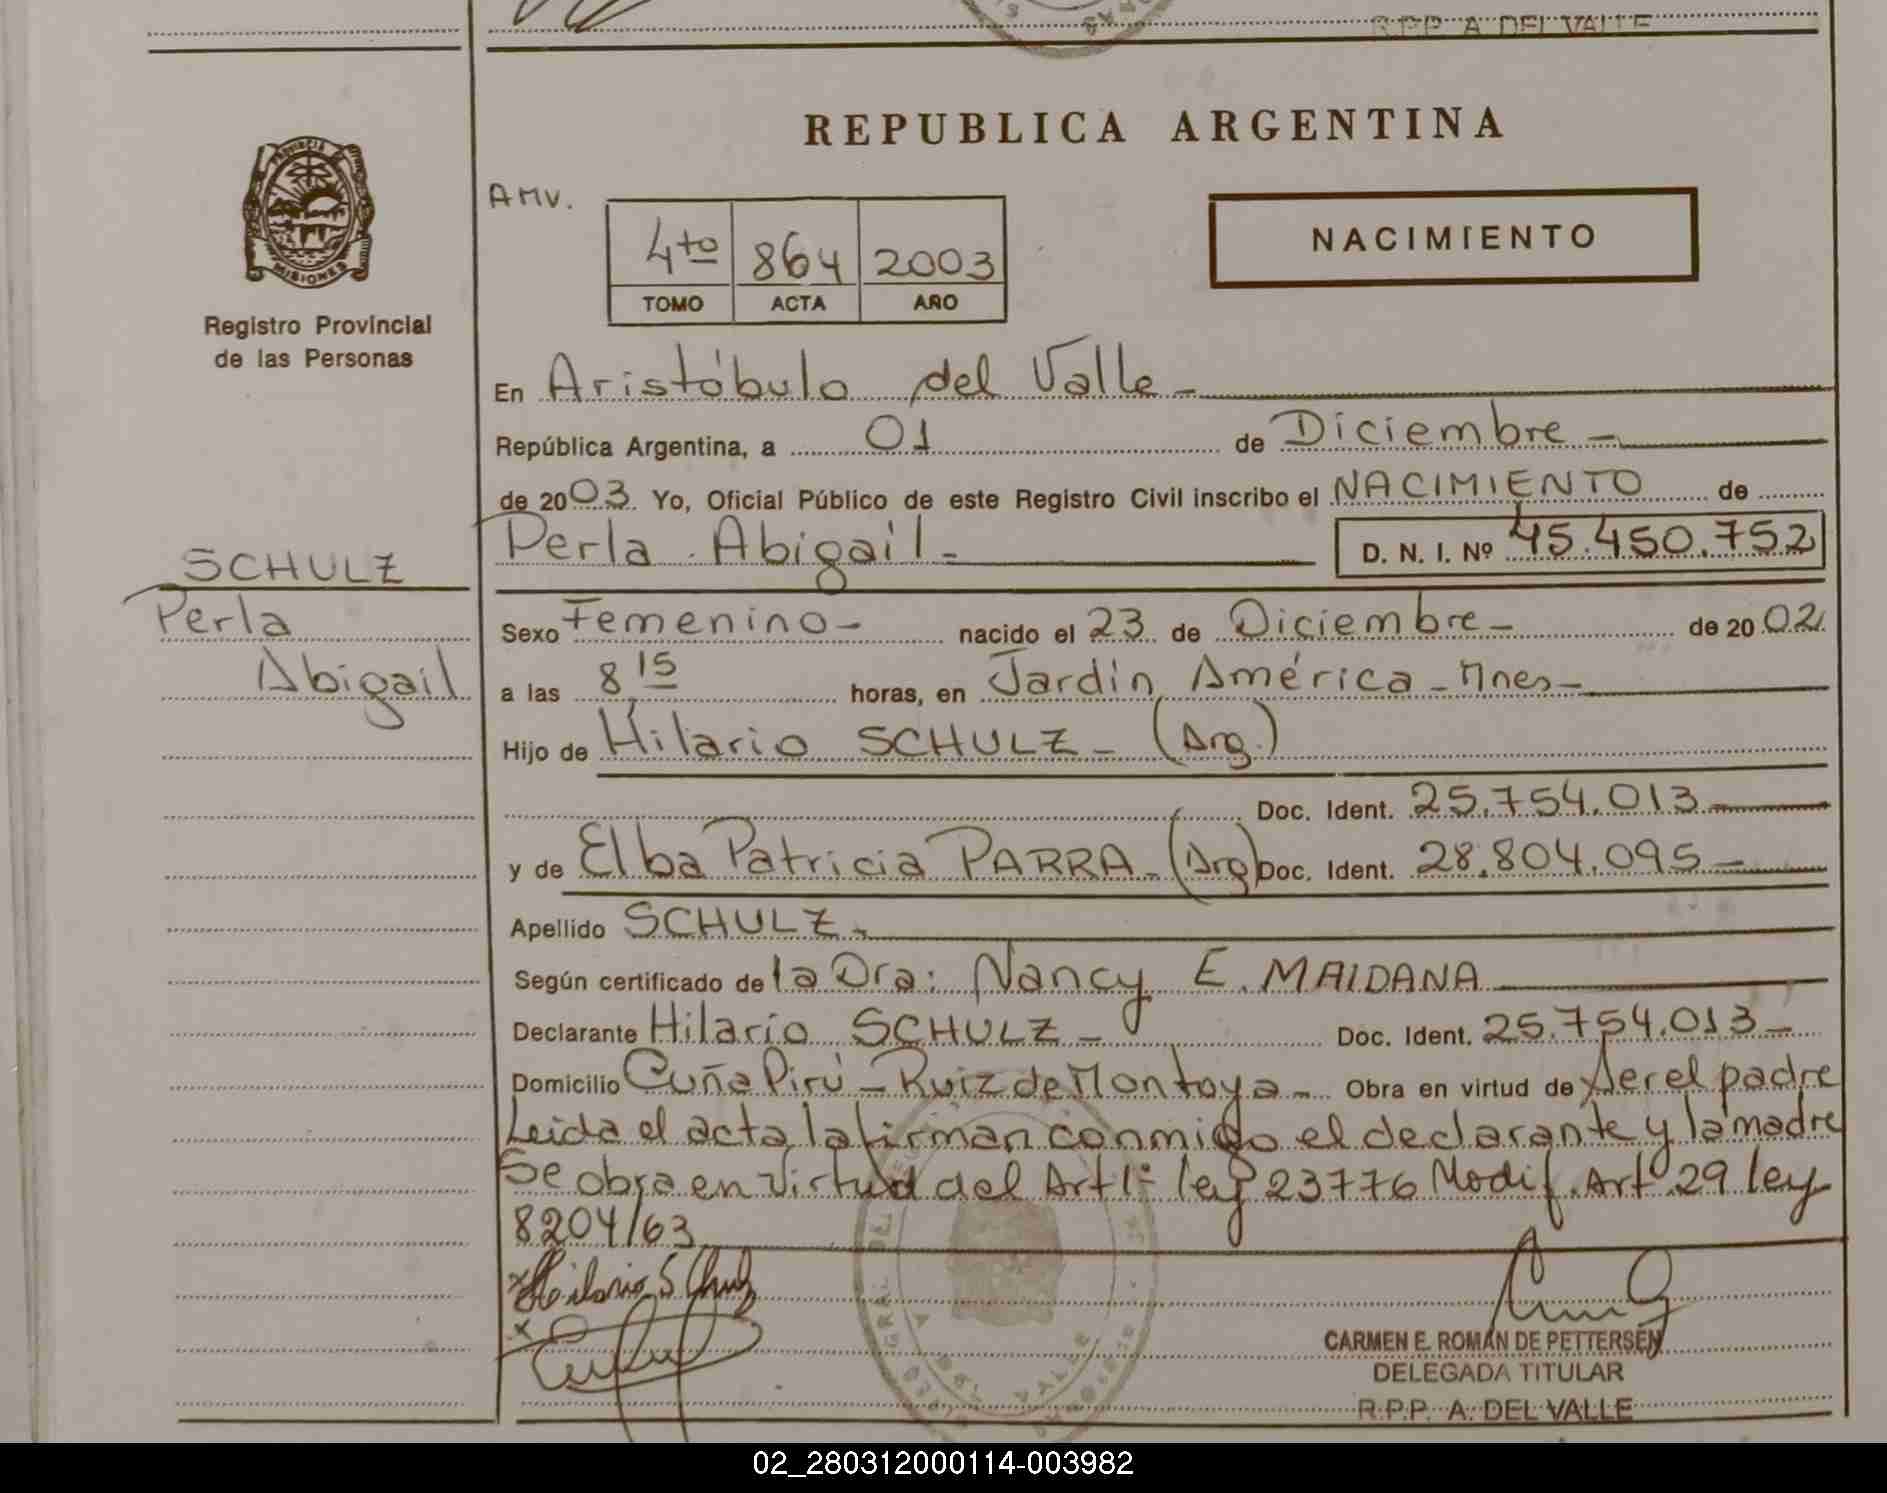 R.P.P. A. DEL VALLE
REPUBLICA ARGENTINA
PROVINCIA DE
MISIONES
Registro Provincial
de las Personas
AMV.
4to 864 2003
TOMO ACTA AÑO
NACIMIENTO
En Aristóbulo del Valle -
República Argentina, a 01 de Diciembre -
de 2003 Yo, Oficial Público de este Registro Civil inscribo el NACIMIENTO de
Perla Abigail - D. N. I. Nº 45.450.752
SCHULZ
Perla
Abigail
Sexo Femenino - nacido el 23 de Diciembre - de 2002
a las 8,15 horas, en Jardín América - Mnes -
Hijo de Hilario SCHULZ - (Arg.)
Doc. Ident. 25.754.013 -
y de Elba Patricia PARRA - (Arg) Doc. Ident. 28.804.095 -
Apellido SCHULZ -
Según certificado de la Dra: Nancy E. MAIDANA
Declarante Hilario SCHULZ - Doc. Ident. 25.754.013 -
Domicilio Cuña Pirú - Ruiz de Montoya - Obra en virtud de ser el padre
Leida el acta la firman conmigo el declarante y la madre
Se obra en virtud del Art 1º ley 23776 Modif. Art 29 ley
8204/63
x Hilario Schulz
x
CARMEN E. ROMAN DE PETTERSEN
DELEGADA TITULAR
R.P.P. A. DEL VALLE
02_280312000114-003982